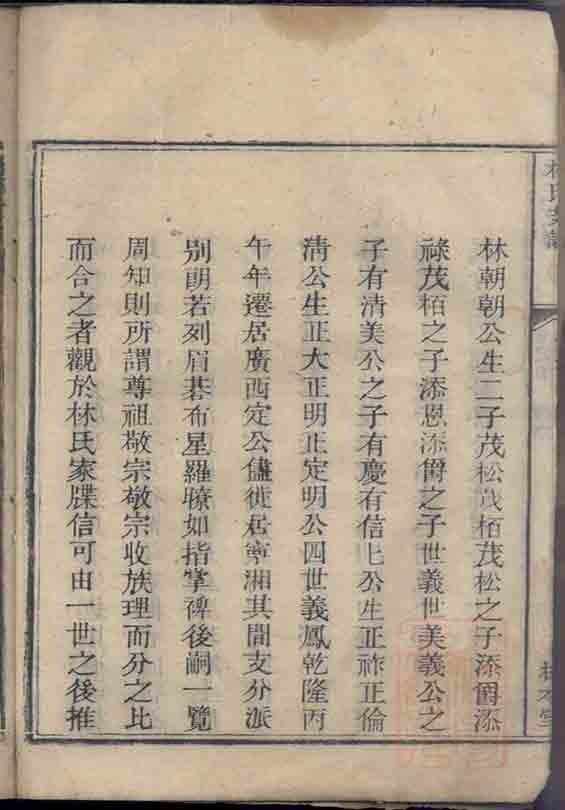 林朝朝公生二子茂松茂栢茂松之子添爵添
祿茂栢之子添恩添爵之子世義世美義公之
子有清美公之子有慶有信七公生正祚正倫
淸公生正大正明正定明公四世義鳳乾隆丙
午年遷居廣西定公儘徙居寧湘其間支分派
别朗若列眉碁布星羅暸如指掌裨後嗣一覽
周知則所謂尊祖敬宗敬宗收族理而分之比
而合之者觀於林氏家牒信可由一世之後推
林氏